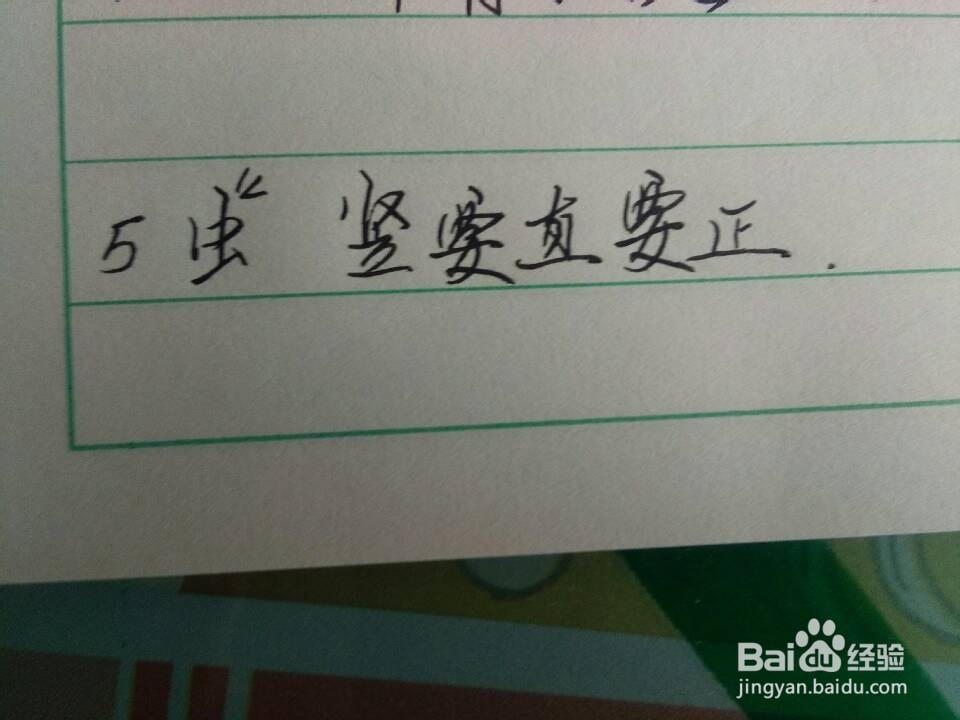 5 虫" 竖要直要正.
Bai du 经验
jingyan.baidu.com